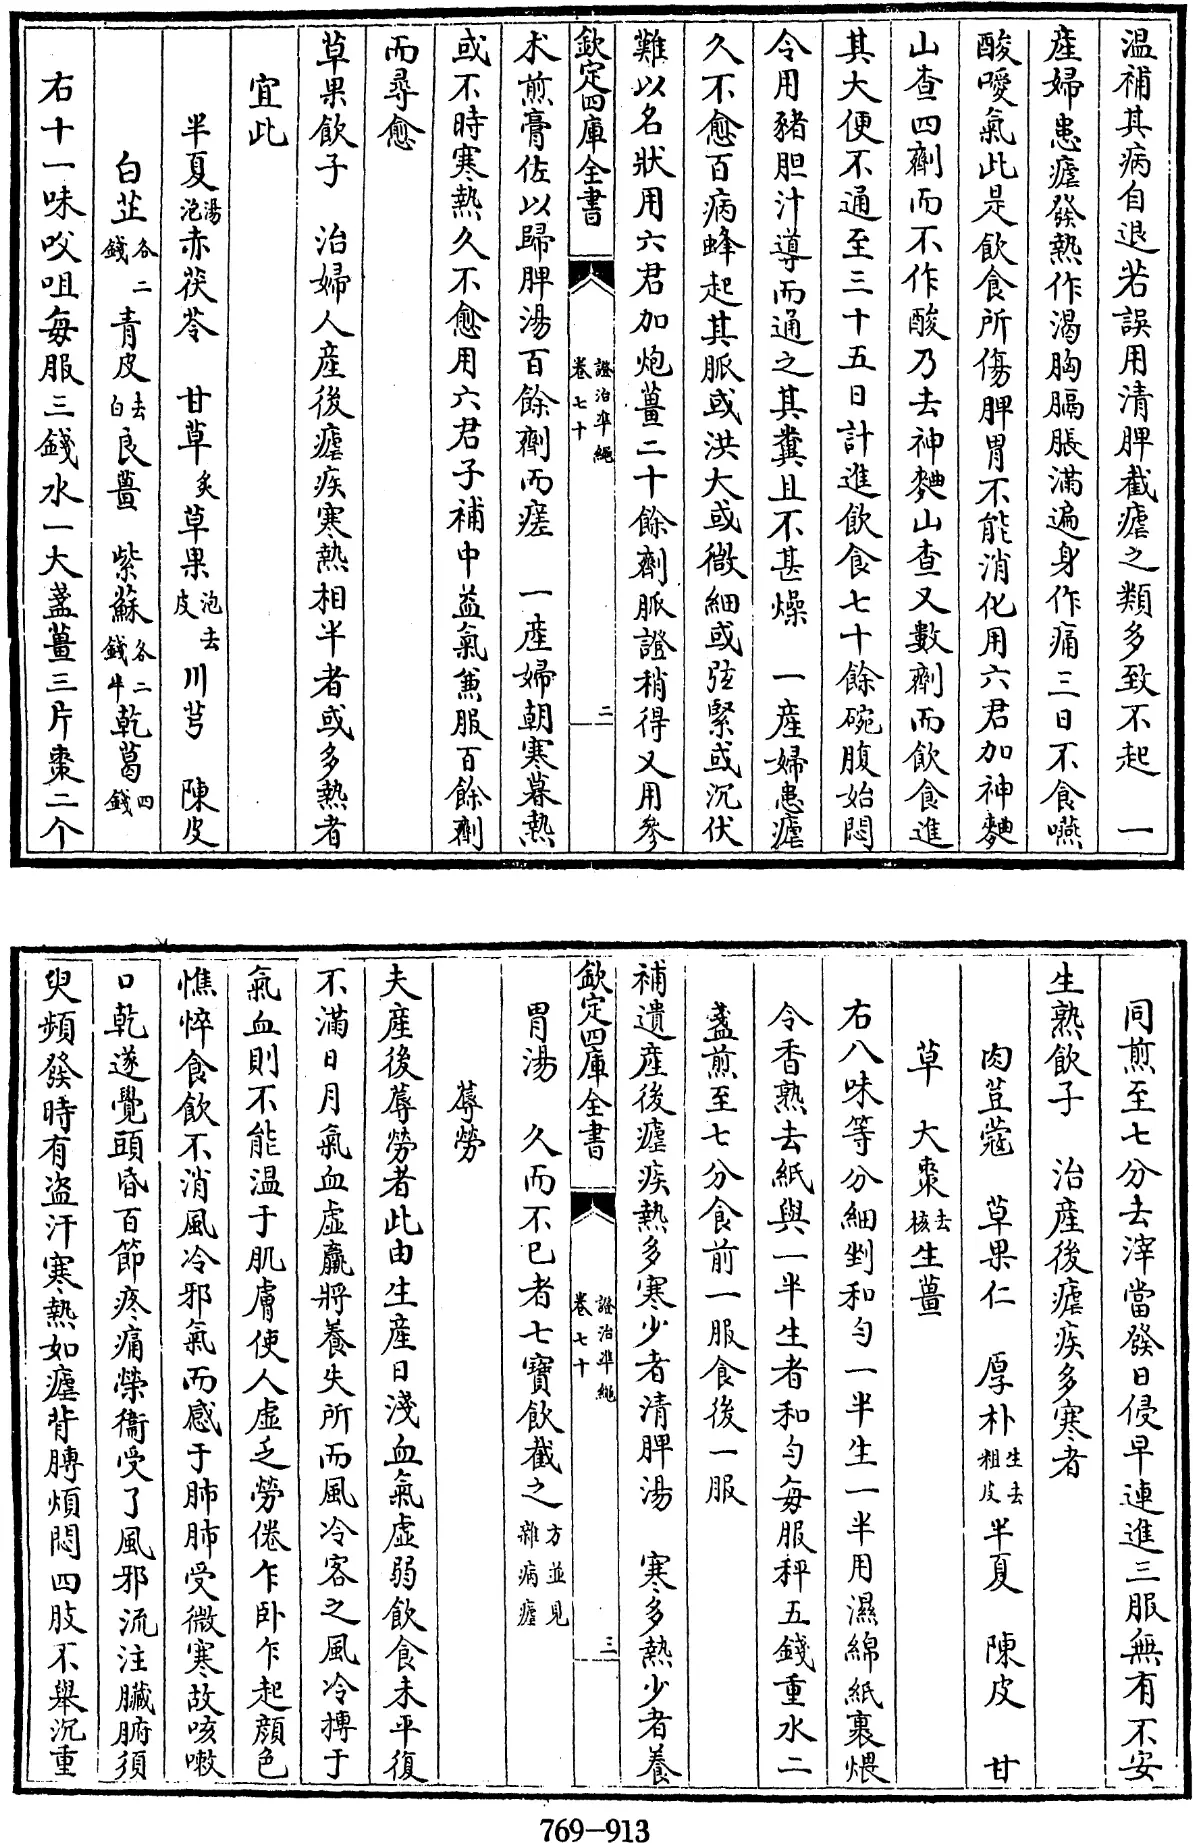 温補其病自退若誤用清脾截瘧之類多致不起　一
産婦患瘧發熱作渴胸膈脹滿遍身作痛三日不食嚥
酸噯氣此是飲食所傷脾胃不能消化用六君加神麯
山查四劑而不作酸乃去神麯山查又數劑而飲食進
其大便不通至三十五日計進飲食七十餘碗腹始悶
令用豬胆汁導而通之其糞且不甚燥　一産婦患瘧
久不愈百病蜂起其脈或洪大或微細或弦緊或沉伏
難以名狀用六君加炮薑二十餘劑脈證稍得又用參
欽定四庫全書　證治凖繩　卷七十　二
术煎膏佐以歸脾湯百餘劑而瘥　一産婦朝寒暮熱
或不時寒熱久不愈用六君子補中益氣兼服百餘劑
而尋愈
草果飲子　治婦人産後瘧疾寒熱相半者或多熱者
宜此
半夏湯泡赤茯苓　甘草炙草果泡去皮川芎　陳皮
白芷各二錢　青皮去白良薑　紫蘇各二錢半乾葛四錢
右十一味㕮咀每服三錢水一大盞薑三片棗二个
同煎至七分去滓當發日侵早連進三服無有不安
生熟飲子　治産後瘧疾多寒者
肉荳蔻　草果仁　厚朴生去粗皮半夏　陳皮　甘
草　大棗去核生薑
右八味等分細剉和勻一半生一半用濕綿紙裹煨
令香熟去紙與一半生者和勻每服秤五錢重水二
盞煎至七分食前一服食後一服
補遺産後瘧疾熱多寒少者清脾湯　寒多熱少者養
欽定四庫全書　證治凖繩　卷七十　三
胃湯　久而不已者七寶飲截之方並見雜病瘧
蓐勞
夫産後蓐勞者此由生産日淺血氣虛弱飲食未平復
不滿日月氣血虛羸將養失所而風冷客之風冷搏于
氣血則不能温于肌膚使人虛乏勞倦乍卧乍起顔色
憔悴食飲不消風冷邪氣而感于肺肺受微寒故咳嗽
口乾遂覺頭昏百節疼痛榮衞受了風邪流注臟腑須
臾頻發時有盗汗寒熱如瘧背膊煩悶四肢不舉沉重
769-913